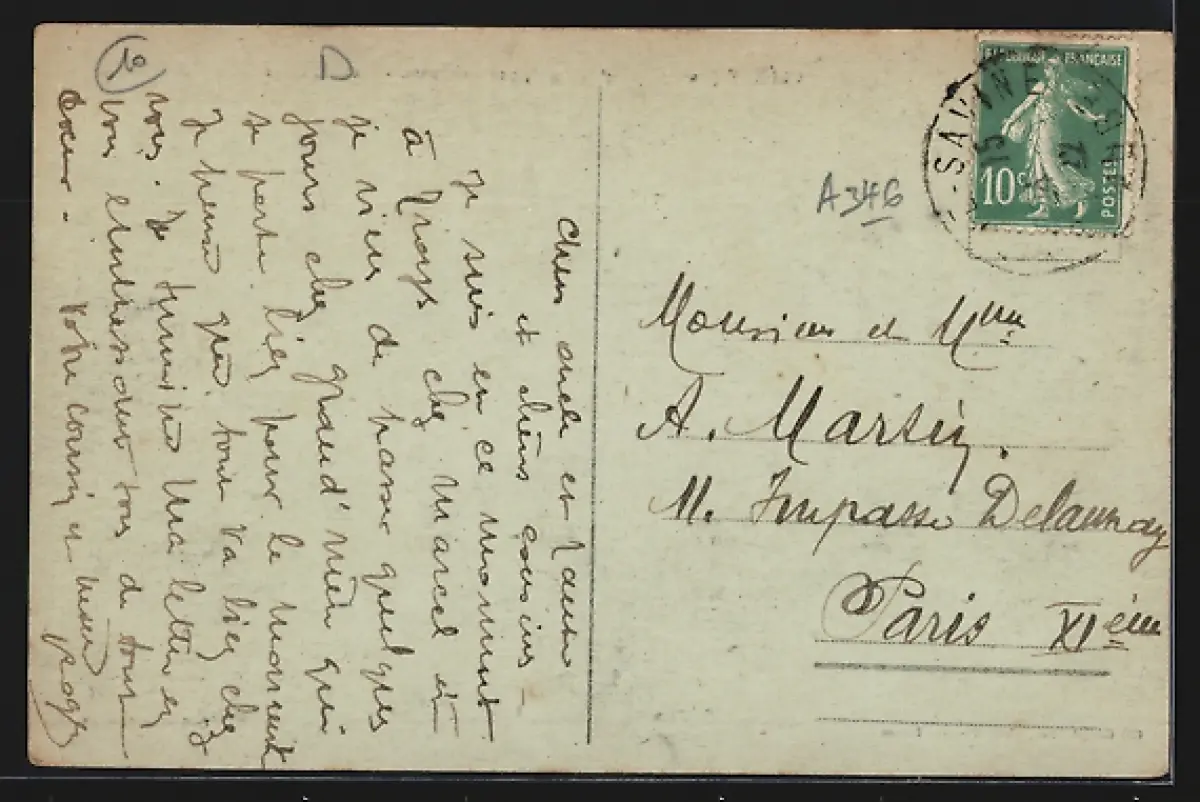 Chers oncle et tante
et chers cousins -
Je suis en ce moment
à Frays chez Marcel et
je viens de passer quelques
jours chez grand'mère qui
se porte bien pour le moment
Je pense que tout va bien chez
vous. Je termine ma lettre en
vous embrassant tous de tout
coeur - votre cousin et neveu
Roger
A346
RÉPUBLIQUE FRANÇAISE
10c
POSTES
SAVINE
15
22
Monsieur et Mme
A. Martin.
Impasse Delaunay
Paris XIème